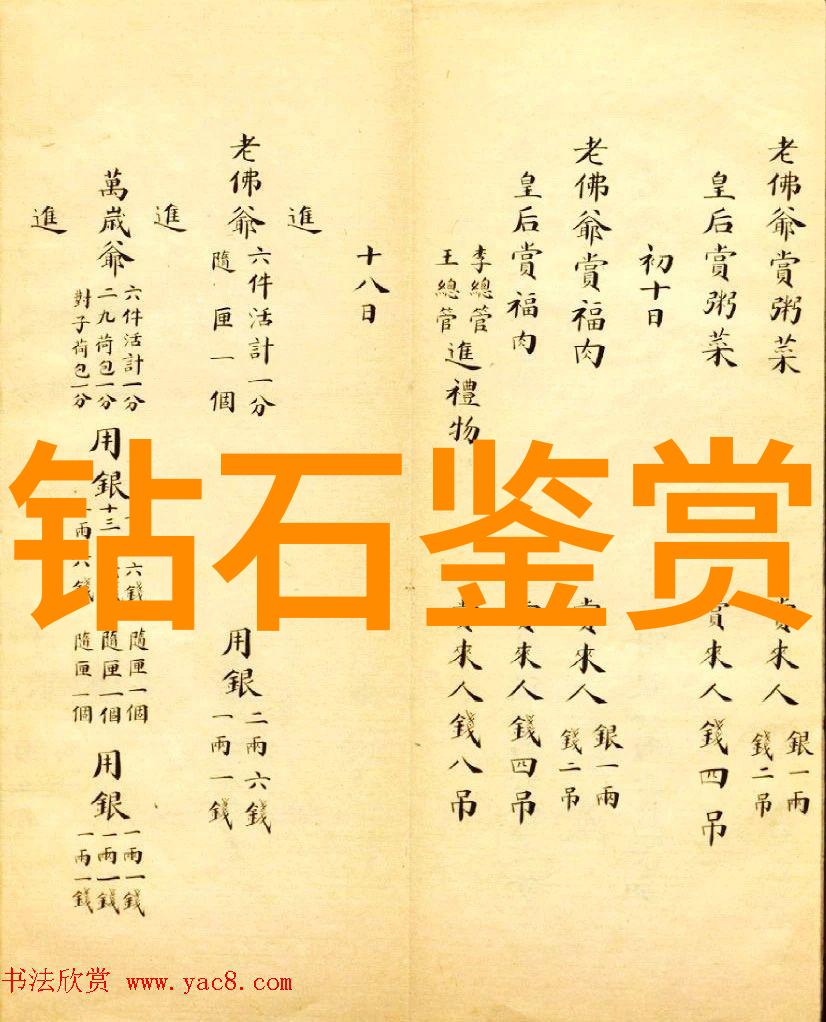 老佛爺賞粥菜 賞來人 銀一兩 錢二吊
皇后賞粥菜 賞來人錢四吊
初十日
老佛爺賞福肉 賞來人 銀一兩 錢二吊
皇后賞福肉 賞來人錢四吊
李總管 王總管 進禮物 賞來人錢八吊
十八日
進
老佛爺 六件活計一分 隨匣一個 用銀 二兩六錢 一兩一錢
進
萬歲爺 六件活計一分 二九荷包一分 對子荷包一分 用銀 六錢 隨匣一個 隨匣一個 隨匣一個 用銀 一兩一錢 一兩一錢 一兩一錢
進
钻石鉴赏
书法欣赏 www.yac8.com